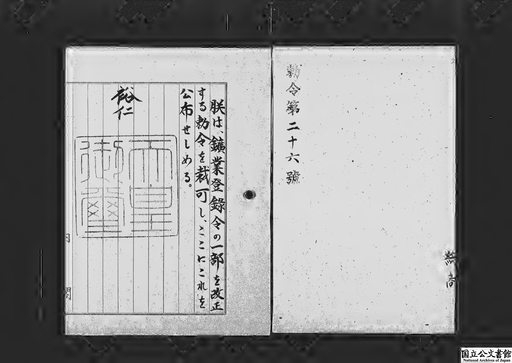 勅令第二十六號
朕は、鑛業登錄令の一部を改正
する勅令を裁可し、ここにこれを
公布せしめる。
裕仁
天皇
御璽
国立公文書館
National Archives of Japan